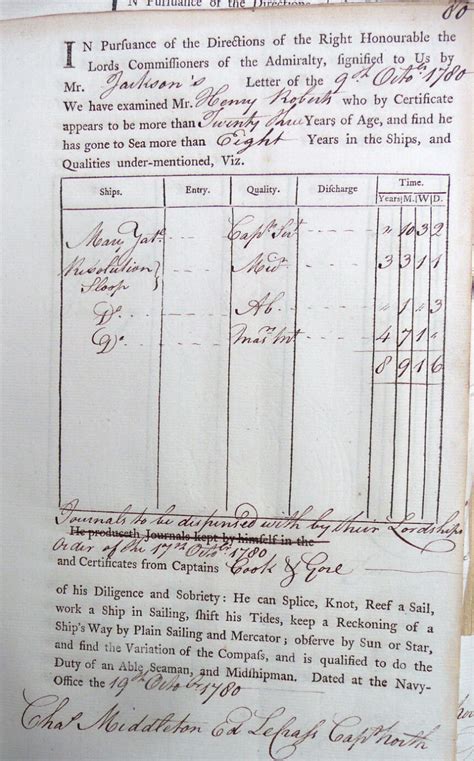 IN Purſuance of the Directions
80
IN Purſuance of the Directions of the Right Honourable the
Lords Commiſſioners of the Admiralty, ſignified to Us by
Mr. Jackson's Letter of the 9th Octor. 1780
We have examined Mr. Henry Roberts who by Certificate
appears to be more than Twenty Years of Age, and find he
has gone to Sea more than Eight Years in the Ships, and
Qualities under-mentioned, Viz.
Ships. Entry. Quality. Diſcharge Time.
Years M. W D.
Mary Capts. Sert. " 10 3 2
Resolution Sloop Mid 3 3 1 1
Do. Ab " 1 " 3
Do. Masrs. Mt 4 7 1 "
8 9 1 6
Journals to be dispensed with by their Lordships
He produceth Journals kept by himſelf in the
Order of the 17th Octobr. 1780
and Certificates from Captains Cook & Gore
of his Diligence and Sobriety: He can Splice, Knot, Reef a Sail,
work a Ship in Sailing, ſhift his Tides, keep a Reckoning of a
Ship's Way by Plain Sailing and Mercator; obſerve by Sun or Star,
and find the Variation of the Compaſs, and is qualified to do the
Duty of an Able Seaman, and Midſhipman. Dated at the Navy-
Office the 19th Octobr 1780
Chas. Middleton Ed Le Capt. North